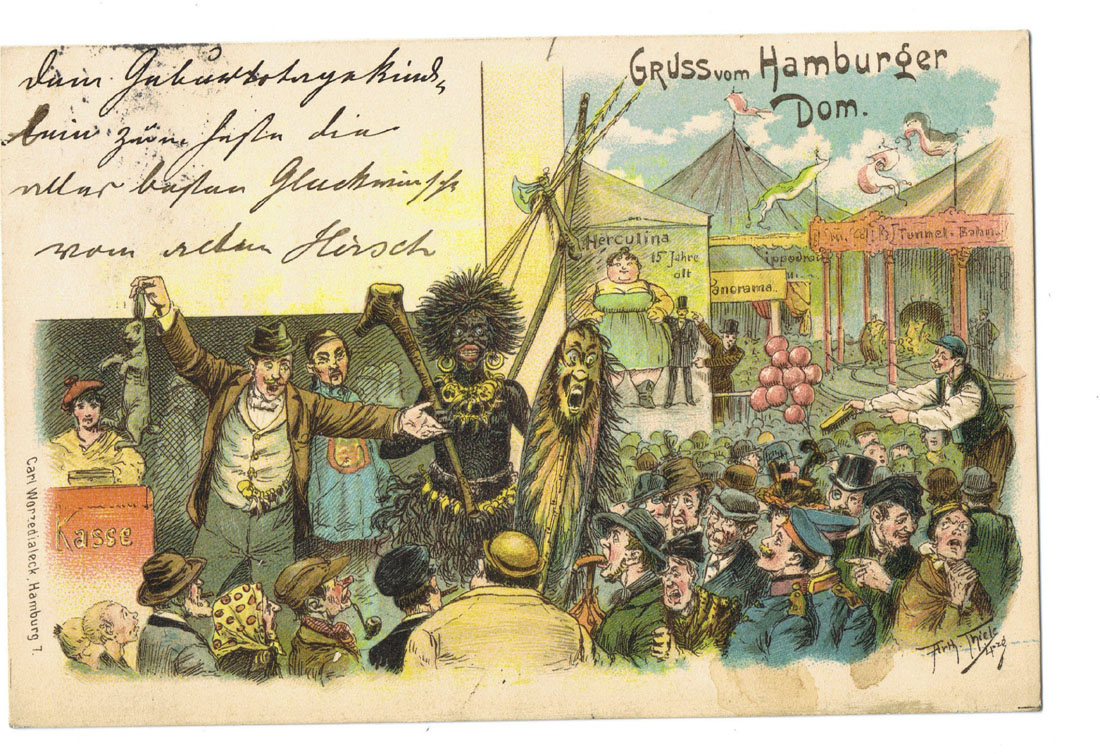 Dem Geburtstagskind,
lein zum Feste die
aller besten Glückwünsche
vom alten Hirsch
Gruss vom Hamburger
Dom.
Herculina
15 Jahre
alt
ippodrom
anorama.
Tunnel-Bahn
Kasse
Carl Worzedialeck, Hamburg 7.
Arth. Thiele
Lpzg